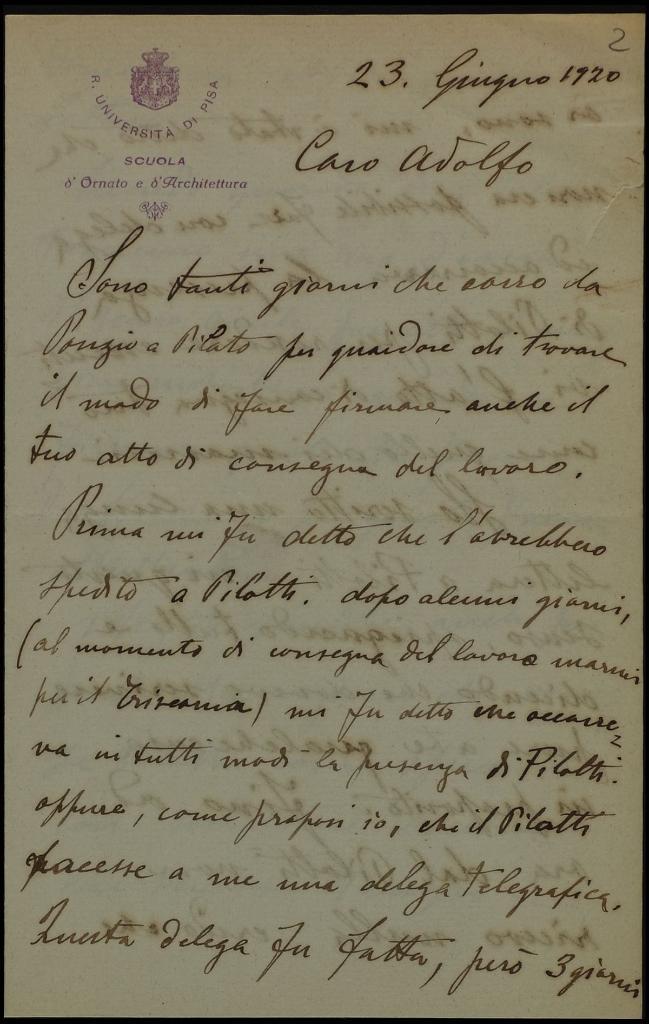 2
23. Giugno 1920
R. UNIVERSITÀ DI PISA
SCUOLA
d'Ornato e d'Architettura
Caro Adolfo
Sono tanti giorni che corro da
Ponzio a Pilato per guardare di trovare
il modo di fare firmare anche il
tuo atto di consegna del lavoro.
Prima mi fu detto che l'avrebbero
spedito a Pilotti. dopo alcuni giorni,
(al momento di consegna del lavoro marmi
per il) mi fu detto che occorre-
va in tutti modi la presenza di Pilotti.
oppure, come proposi io, che il Pilotti
facesse a me una delega telegrafica.
Questa delega fu fatta, però 3 giorni